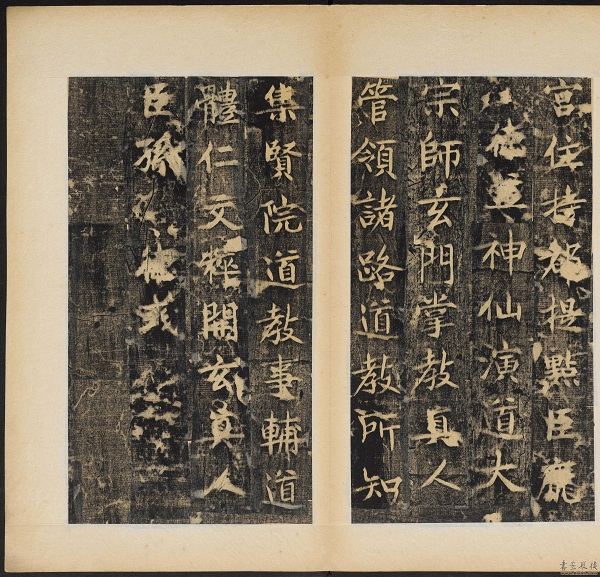 宮住持都提點臣龐
神仙演道大
宗師玄門掌教真人
管領諸路道教所知
集賢院道教事輔道
體仁文粹開玄真人
臣孫德彧